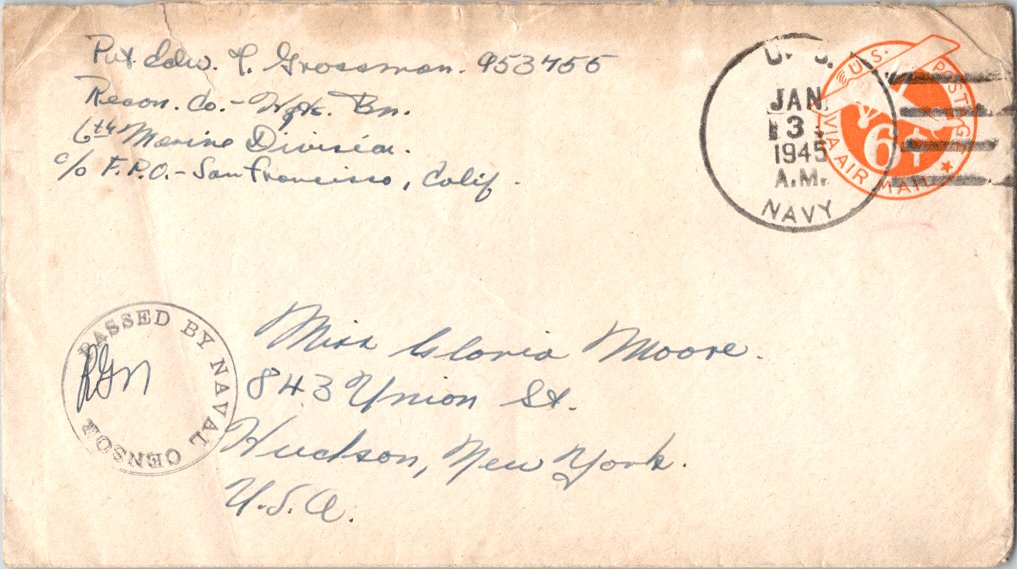 Pvt. Edw. T. Grossman. 953455
Recon. Co. - Hq. Bn.
6th Marine Division.
c/o F.P.O. - San Francisco, Calif.
U.S.
JAN.
3
1945
A.M.
NAVY
U.S. POSTAGE
6¢
VIA AIR MAIL
PASSED BY NAVAL CENSOR
Miss Gloria Moore.
843 Union St.
Hudson, New York.
U.S.A.